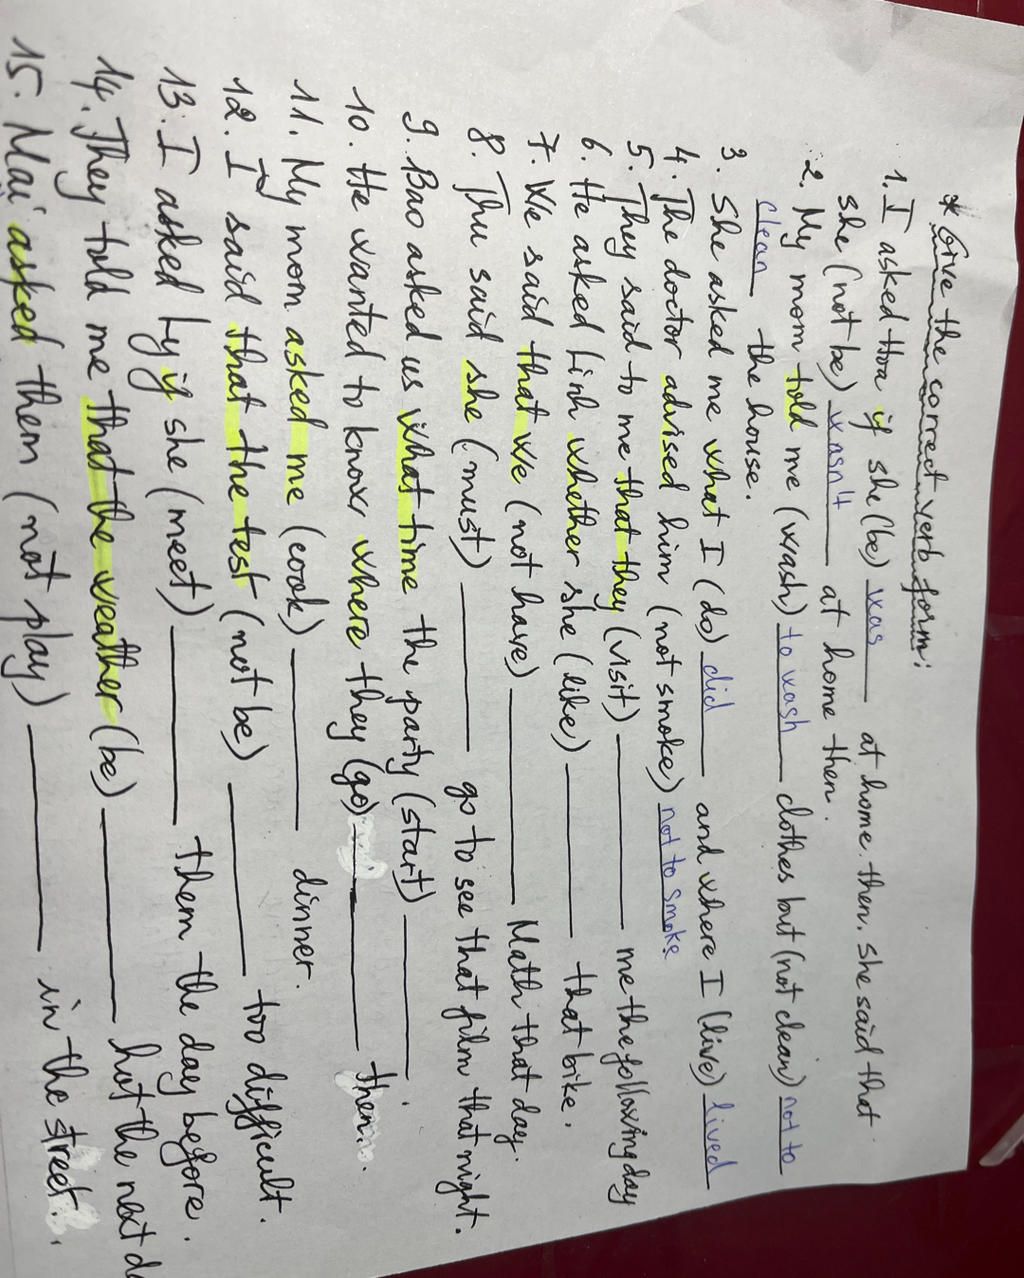 * Give the correct verb form:
1. I asked Hoa if she (be) was at home then. She said that
she (not be) wasn't at home then.
2. My mom told me (wash) to wash clothes but (not clean) not to
clean the house.
3. She asked me what I (do) did and where I (live) lived
4. The doctor advised him (not smoke) not to smoke
5. They said to me that they (visit) ____ me the following day
6. He asked Linh whether she (like) ____ that bike.
7. We said that we (not have) ____ Math that day.
8. Thu said she (must) ____ go to see that film that night.
9. Bao asked us what time the party (start) ____.
10. He wanted to know where they (go) ____ then.
11. My mom asked me (cook) ____ dinner.
12. I said that the test (not be) ____ too difficult.
13. I asked Ly if she (meet) ____ them the day before.
14. They told me that the weather (be) ____ hot the next
15. Mai asked them (not play) ____ in the street.